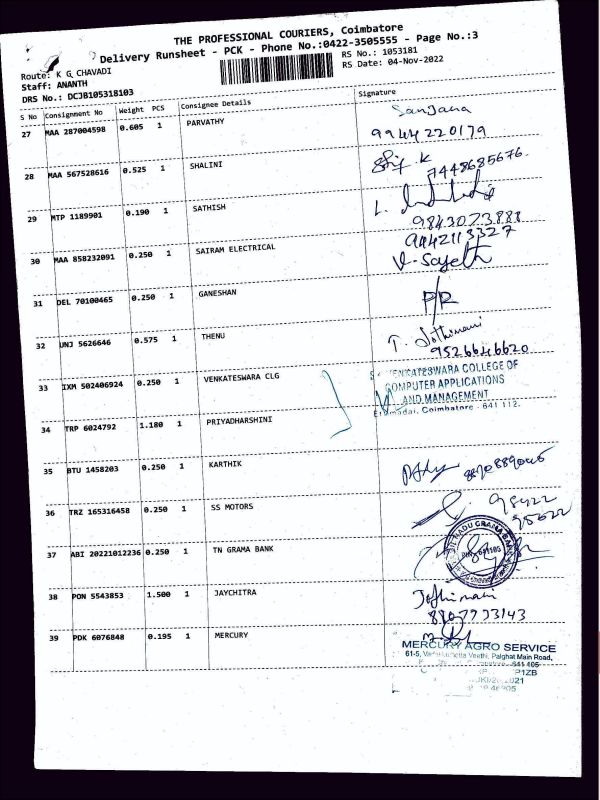 THE PROFESSIONAL COURIERS, Coimbatore
Delivery Runsheet - PCK - Phone No.:0422-3505555 - Page No.:3
Route: K G CHAVADI
RS No.: 1053181
Staff: ANANTH
RS Date: 04-Nov-2022
DRS No.: DCJB105318103
S No Consignment No Weight PCS Consignee Details Signature
27 MAA 287004598 0.605 1 PARVATHY Sanjana
9944220179
28 MAA 567528616 0.525 1 SHALINI K
7448685676
29 MTP 1189901 0.190 1 SATHISH L.
9843073888
30 MAA 858232091 0.250 1 SAIRAM ELECTRICAL 9442113327
31 DEL 70100465 0.250 1 GANESHAN
32 UNJ 5626646 0.575 1 THENU T. Jothimani
9526646620
33 IXM 502406924 0.250 1 VENKATESWARA CLG VENKATESWARA COLLEGE OF
COMPUTER APPLICATIONS
AND MANAGEMENT
Coimbatore - 641 112.
34 TRP 6024792 1.180 1 PRIYADHARSHINI
35 BTU 1458203 0.250 1 KARTHIK
36 TRZ 165316458 0.250 1 SS MOTORS 98422
95622
37 ABI 20221012236 0.250 1 TN GRAMA BANK NADU GRAMA BANK
641105
38 PON 5543853 1.500 1 JAYCHITRA Jothimani
8807733143
39 PDK 6076848 0.195 1 MERCURY
MERCURY AGRO SERVICE
61-5, Veethi, Palghat Main Road,
641 105
P1ZB